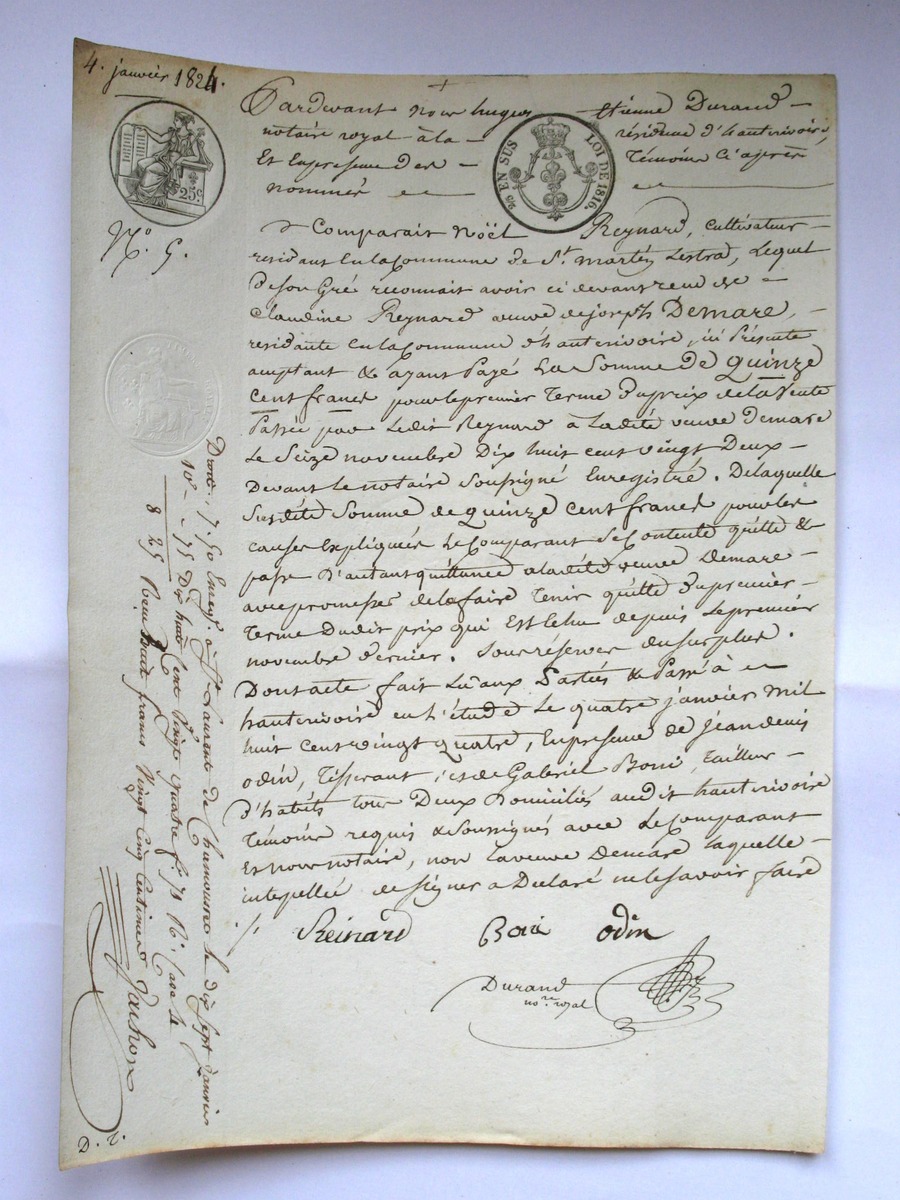 4. janvier 1824.
Pardevant nous hugues Etienne Durand
notaire royal à la résidence d'hauterivoire,
Et En présence des témoins Ci après
nommés
25 EN SUS LOI DE 1816.
25 c.
N.° 5.
Comparait Noël Reynard, Cultivateur
residant En la Commune de S.t martin Lestrad, Lequel
de son Gré reconnait avoir ci devant reçu de
Claudine Reynard veuve de joseph Demare,
residante En la Commune d'hauterivoire, ici Présente
acceptant & ayant Payé La Somme de Quinze
Cent francs pour le premier terme du prix de la Vente
Passée par Ledit Reynard à Ladite veuve Demare
Le Seize novembre Dix huit cent vingt Deux
Devant le notaire Soussigné Enregistré. De laquelle
Susdite Somme de Quinze Cent francs pour les
causes Expliquées Le Comparant Se Contente quitte &
passe d'autant quittance a ladite veuve Demare
avec promesse de la faire tenir quitte du premier
terme dudit prix qui Est Echu depuis Le premier
novembre dernier. Sous réserves du surplus.
Dont acte fait Lu aux Parties & Passé à
hauterivoire en L'étude Le quatre janvier mil
huit Cent vingt quatre, En presence de jean denis
odin, tisserant, et de Gabriel Boni, tailleur
d'habits tous Deux Domiciliés audit hauterivoire
témoins requis & Soussignés avec Le Comparant
Et nous notaire, non La veuve Demare Laquelle
interpellée de signer a Déclaré ne le savoir faire
Reinard Boni odin
Durand
no.re royal
Droit. 7. 50 Enreg.é à S.t Laurent de Chamousset le dix sept Janvier
10.e - 75 Dix huit Cent Vingt quatre f.o 71 R.o Case 4
8 25 Reçu huit francs Vingt Cinq Centimes
D. t.